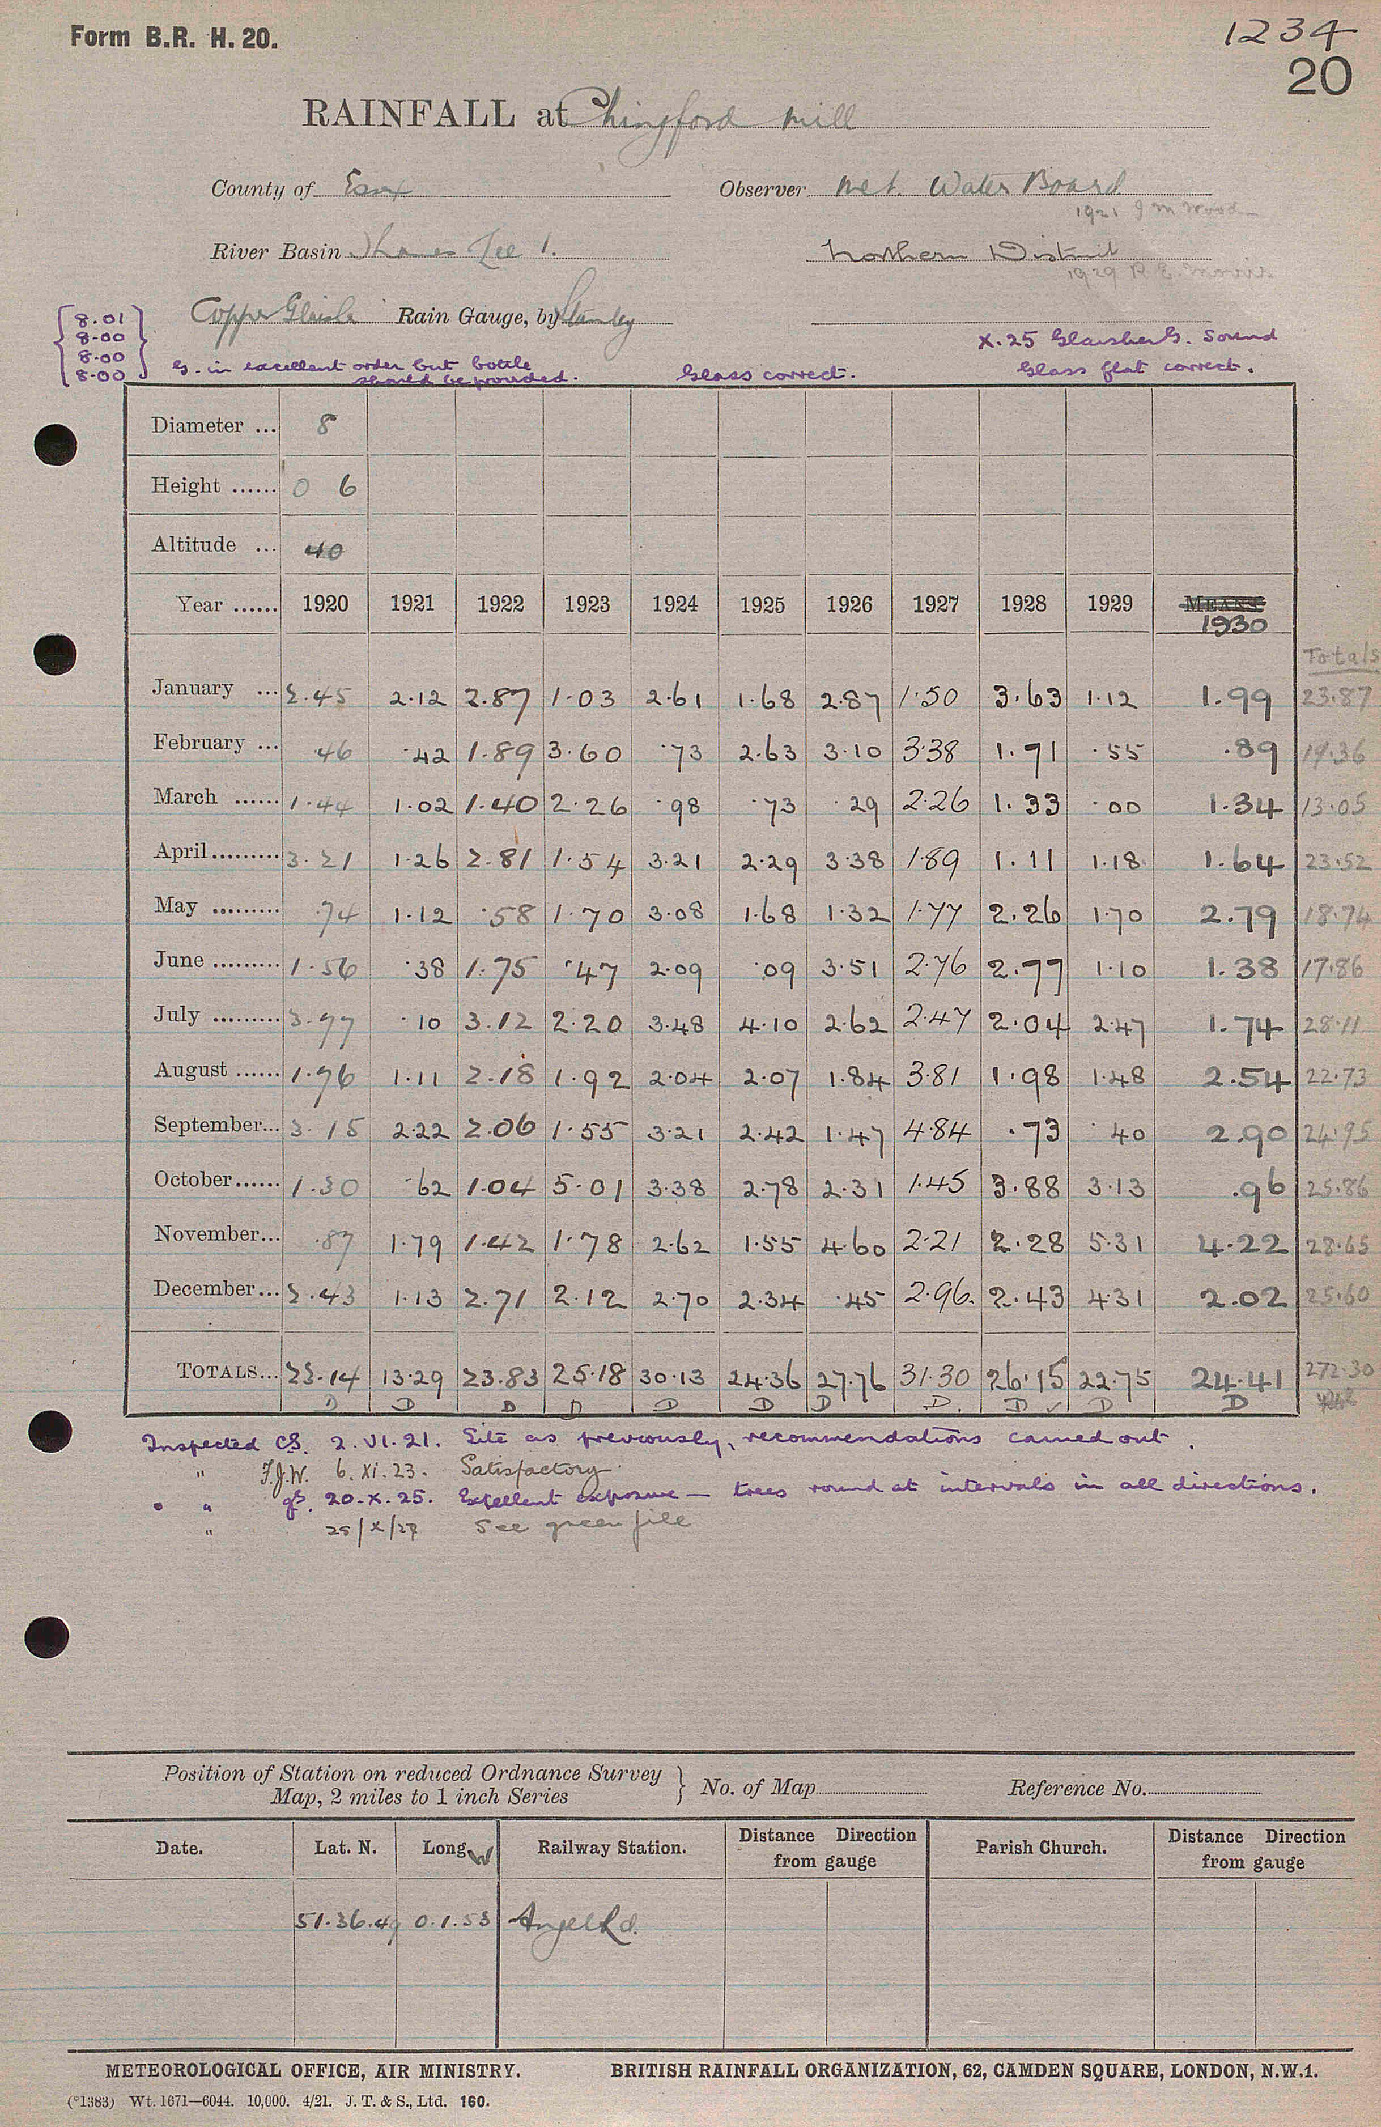 Form B.R. H. 20.
1234
20
RAINFALL at Chingford Mill
County of Essex Observer Met. Water Board
1921 J M Wood
River Basin Thames Lee 1. Northern District
1929 R. E. Morris
Copper Glaisher Rain Gauge, by Stanley
8.01
8.00
8.00
8.00
G. in excellent order but bottle
should be provided.
Glass correct.
X.25 Glaisher G. Sound
Glass flat correct.
Diameter ... 8
Height ...... 0 6
Altitude ... 40
Year ...... 1920 1921 1922 1923 1924 1925 1926 1927 1928 1929 MEANS 1930
Totals
January ... 2.45 2.12 2.87 1.03 2.61 1.68 2.87 1.50 3.63 1.12 1.99 23.87
February ... .46 .42 1.89 3.60 .73 2.63 3.10 3.38 1.71 .55 .89 19.36
March ...... 1.44 1.02 1.40 2.26 .98 .73 .29 2.26 1.33 .00 1.34 13.05
April......... 3.21 1.26 2.81 1.54 3.21 2.29 3.38 1.89 1.11 1.18 1.64 23.52
May ......... .74 1.12 .58 1.70 3.08 1.68 1.32 1.77 2.26 1.70 2.79 18.74
June ......... 1.56 .38 1.75 .47 2.09 .09 3.51 2.76 2.77 1.10 1.38 17.86
July ......... 3.77 .10 3.12 2.20 3.48 4.10 2.62 2.47 2.04 2.47 1.74 28.11
August ...... 1.76 1.11 2.18 1.92 2.04 2.07 1.84 3.81 1.98 1.48 2.54 22.73
September... 3.15 2.22 2.06 1.55 3.21 2.42 1.47 4.84 .73 .40 2.90 24.95
October...... 1.30 .62 1.04 5.01 3.38 2.78 2.31 1.45 3.88 3.13 .96 25.86
November... .87 1.79 1.42 1.78 2.62 1.55 4.60 2.21 2.28 5.31 4.22 28.65
December... 2.43 1.13 2.71 2.12 2.70 2.34 .45 2.96. 2.43 4.31 2.02 25.60
TOTALS... 23.14 13.29 23.83 25.18 30.13 24.36 27.76 31.30 26.15 22.75 24.41 272.30
D D D D D D D D. D ✓ D D
Inspected CS. 2.VI.21. Site as previously, recommendations carried out.
" F.J.W. 6.XI.23. Satisfactory.
" " gS. 20.X.25. Excellent exposure — trees round at intervals in all directions.
" 25/X/27 See green file
Position of Station on reduced Ordnance Survey
Map, 2 miles to 1 inch Series } No. of Map Reference No.
Date. Lat. N. Long. W Railway Station. Distance Direction from gauge Parish Church. Distance Direction from gauge
51.36.49 0.1.53 Angel Rd.
METEOROLOGICAL OFFICE, AIR MINISTRY. BRITISH RAINFALL ORGANIZATION, 62, CAMDEN SQUARE, LONDON, N.W.1.
(*1383) Wt. 1671—6044. 10,000. 4/21. J. T. & S., Ltd. 160.